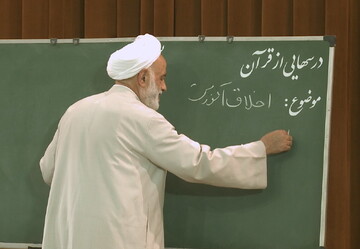 درسهایی از قرآن
موضوع: اخلاق آموزش